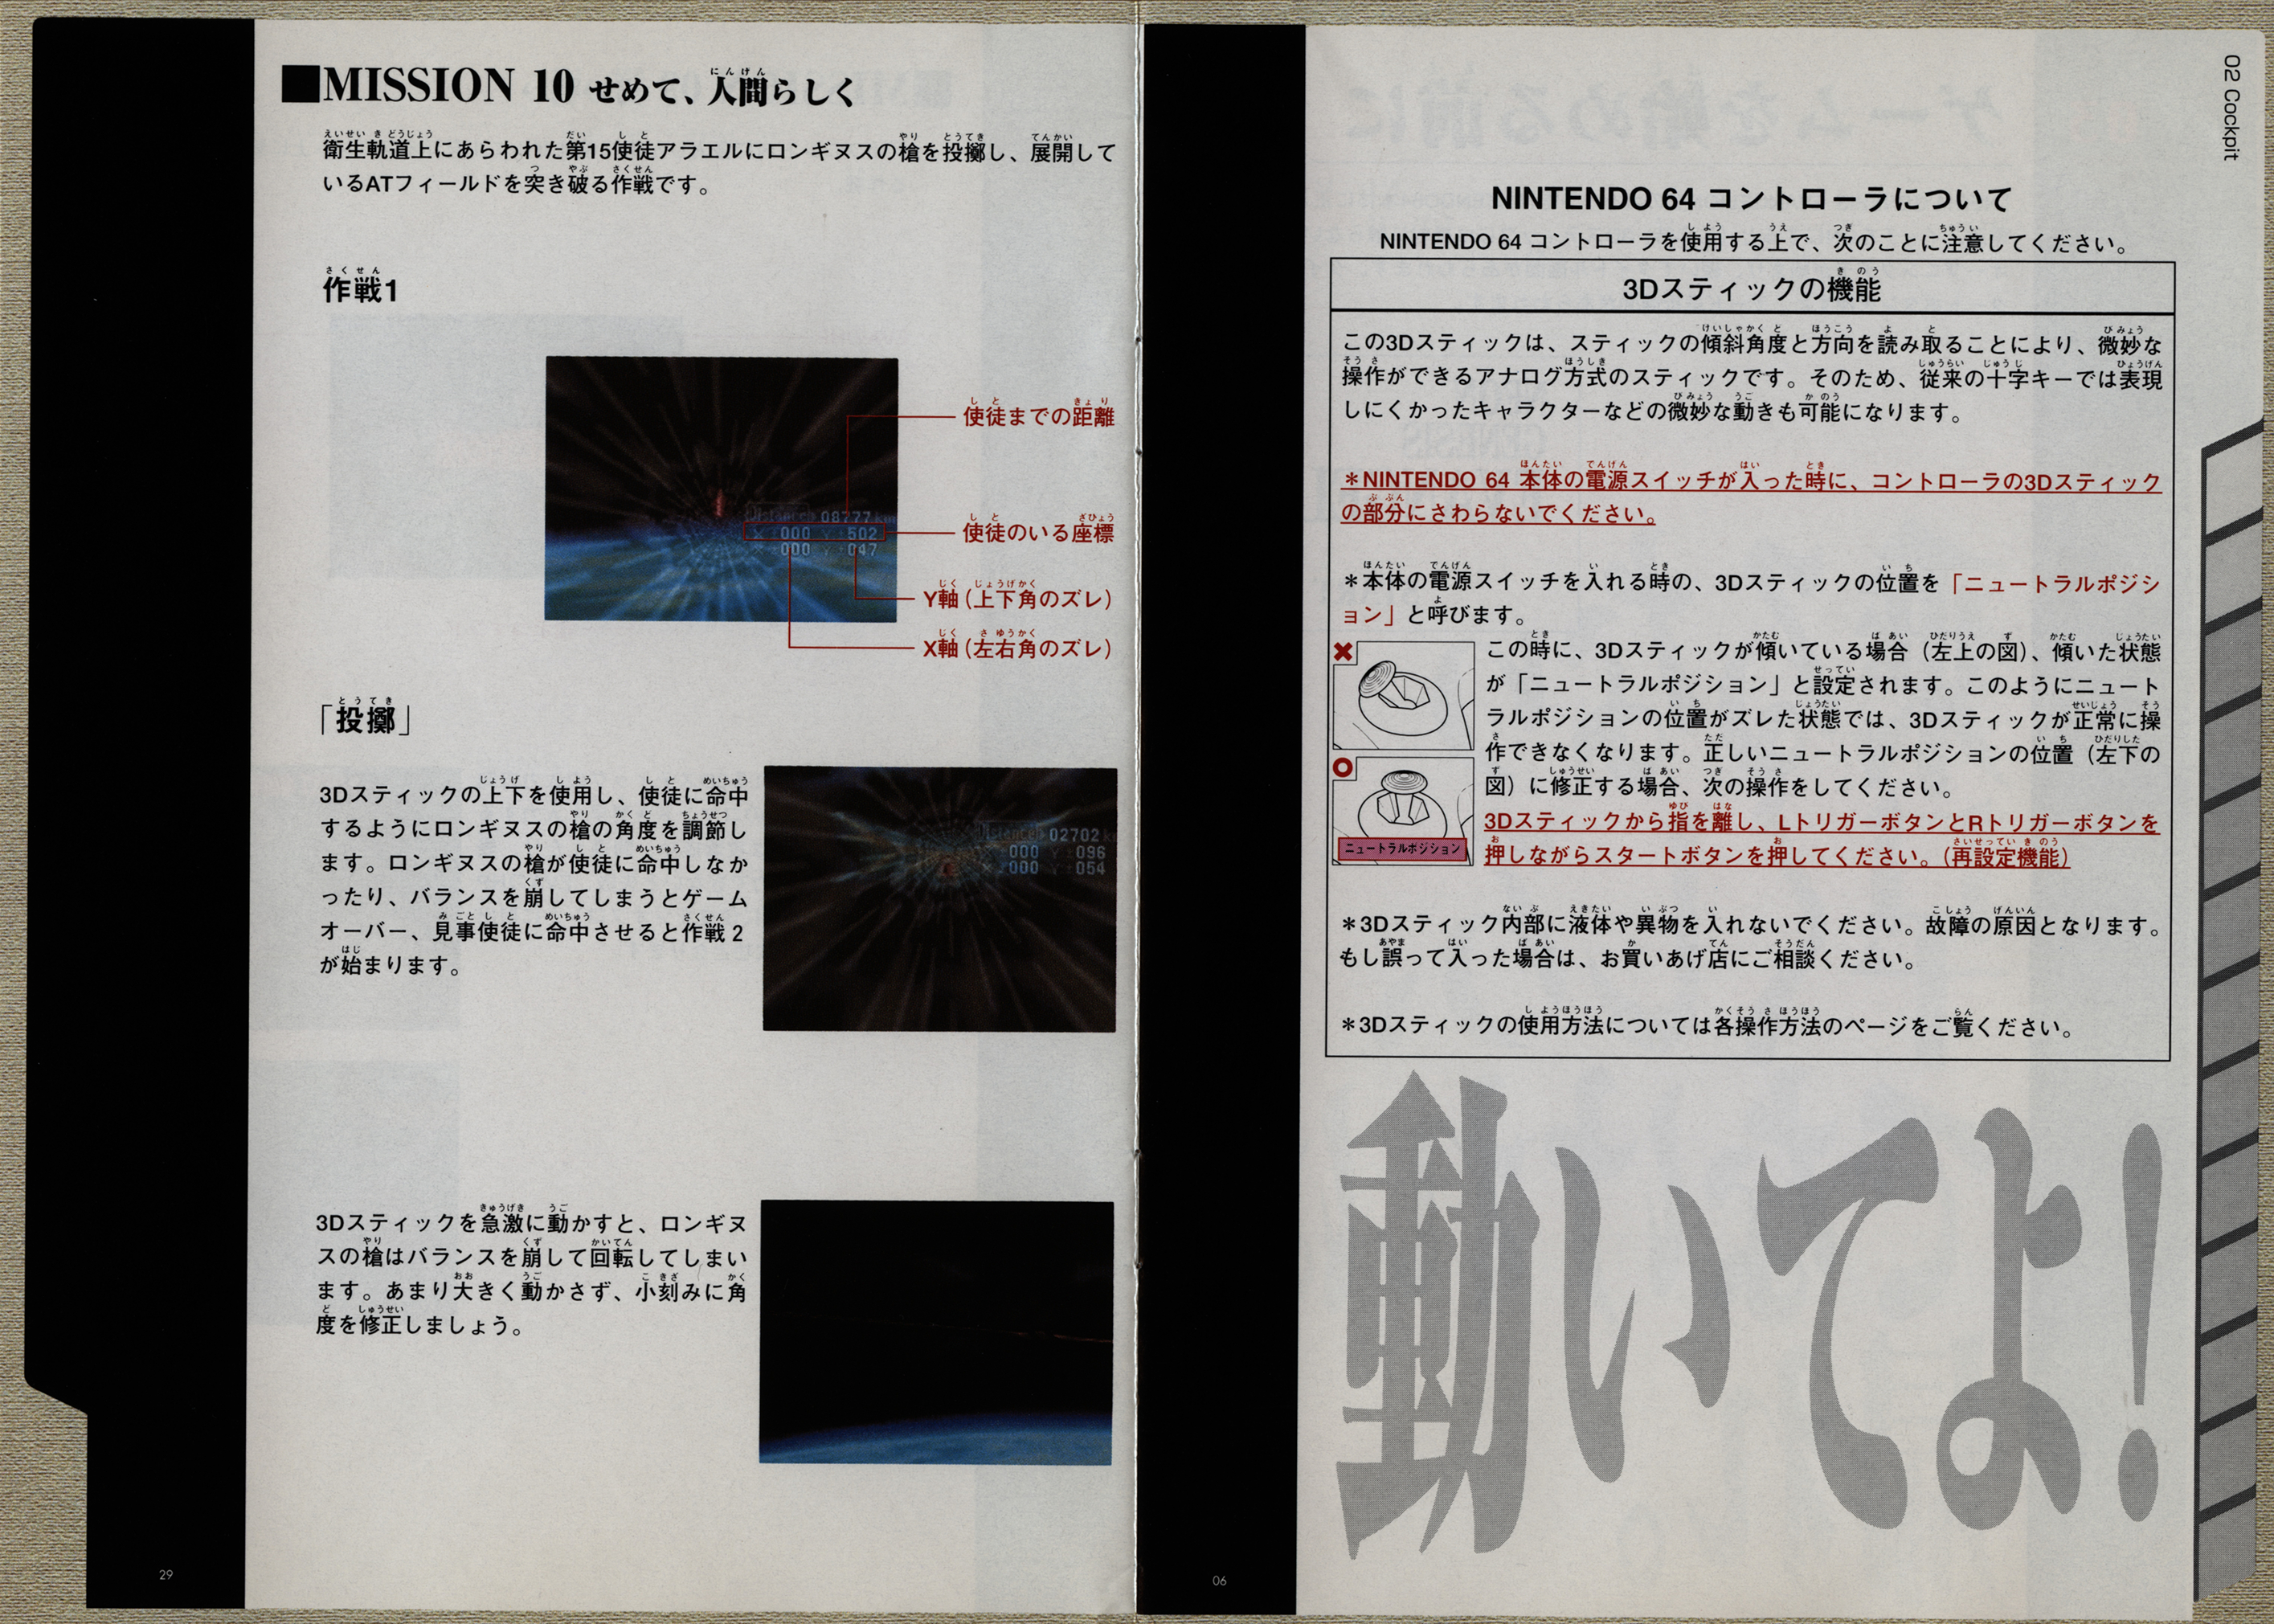 ■MISSION 10 せめて、人間らしく
衛生軌道上にあらわれた第15使徒アラエルにロンギヌスの槍を投擲し、展開して
いるATフィールドを突き破る作戦です。
作戦1
使徒までの距離
Distance 08777km
X:000 Y:502
X:000 Y:047
使徒のいる座標
Y軸(上下角のズレ)
X軸(左右角のズレ)
「投擲」
3Dスティックの上下を使用し、使徒に命中
するようにロンギヌスの槍の角度を調節し
ます。ロンギヌスの槍が使徒に命中しなか
ったり、バランスを崩してしまうとゲーム
オーバー、見事使徒に命中させると作戦2
が始まります。
Distance 02702k
X:000 Y:096
X:000 Y:054
3Dスティックを急激に動かすと、ロンギヌ
スの槍はバランスを崩して回転してしまい
ます。あまり大きく動かさず、小刻みに角
度を修正しましょう。
29
02 Cockpit
NINTENDO 64 コントローラについて
NINTENDO 64 コントローラを使用する上で、次のことに注意してください。
3Dスティックの機能
この3Dスティックは、スティックの傾斜角度と方向を読み取ることにより、微妙な
操作ができるアナログ方式のスティックです。そのため、従来の十字キーでは表現
しにくかったキャラクターなどの微妙な動きも可能になります。
＊NINTENDO 64 本体の電源スイッチが入った時に、コントローラの3Dスティック
の部分にさわらないでください。
＊本体の電源スイッチを入れる時の、3Dスティックの位置を「ニュートラルポジシ
ョン」と呼びます。
この時に、3Dスティックが傾いている場合（左上の図）、傾いた状態
が「ニュートラルポジション」と設定されます。このようにニュート
ラルポジションの位置がズレた状態では、3Dスティックが正常に操
作できなくなります。正しいニュートラルポジションの位置（左下の
図）に修正する場合、次の操作をしてください。
3Dスティックから指を離し、LトリガーボタンとRトリガーボタンを
押しながらスタートボタンを押してください。（再設定機能）
ニュートラルポジション
＊3Dスティック内部に液体や異物を入れないでください。故障の原因となります。
もし誤って入った場合は、お買いあげ店にご相談ください。
＊3Dスティックの使用方法については各操作方法のページをご覧ください。
動いてよ!
06